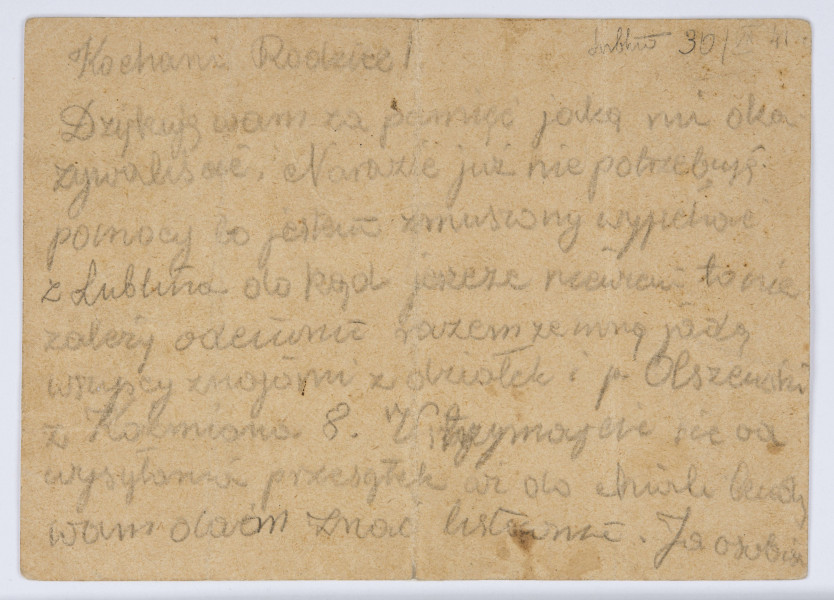 Lublin 30/VII 41.
Kochani Rodzice!
Dzykuję wam za pamięć jaką mi oka-
zywaliście. Narazie już nie potrzebuję
pomocy bo jestem zmusiony wyjechac
z Lublina do kąd jeszcze niewiem to nie
zalezy odemnie razem ze mną jadą
wszyscy znajomi z działek i p. Olszewski
z Kozmiana 8. Wstrzymajcie się od
wysyłania przesyłek aż do chwili kiedy
wam dam znac listownie. Ja osobis